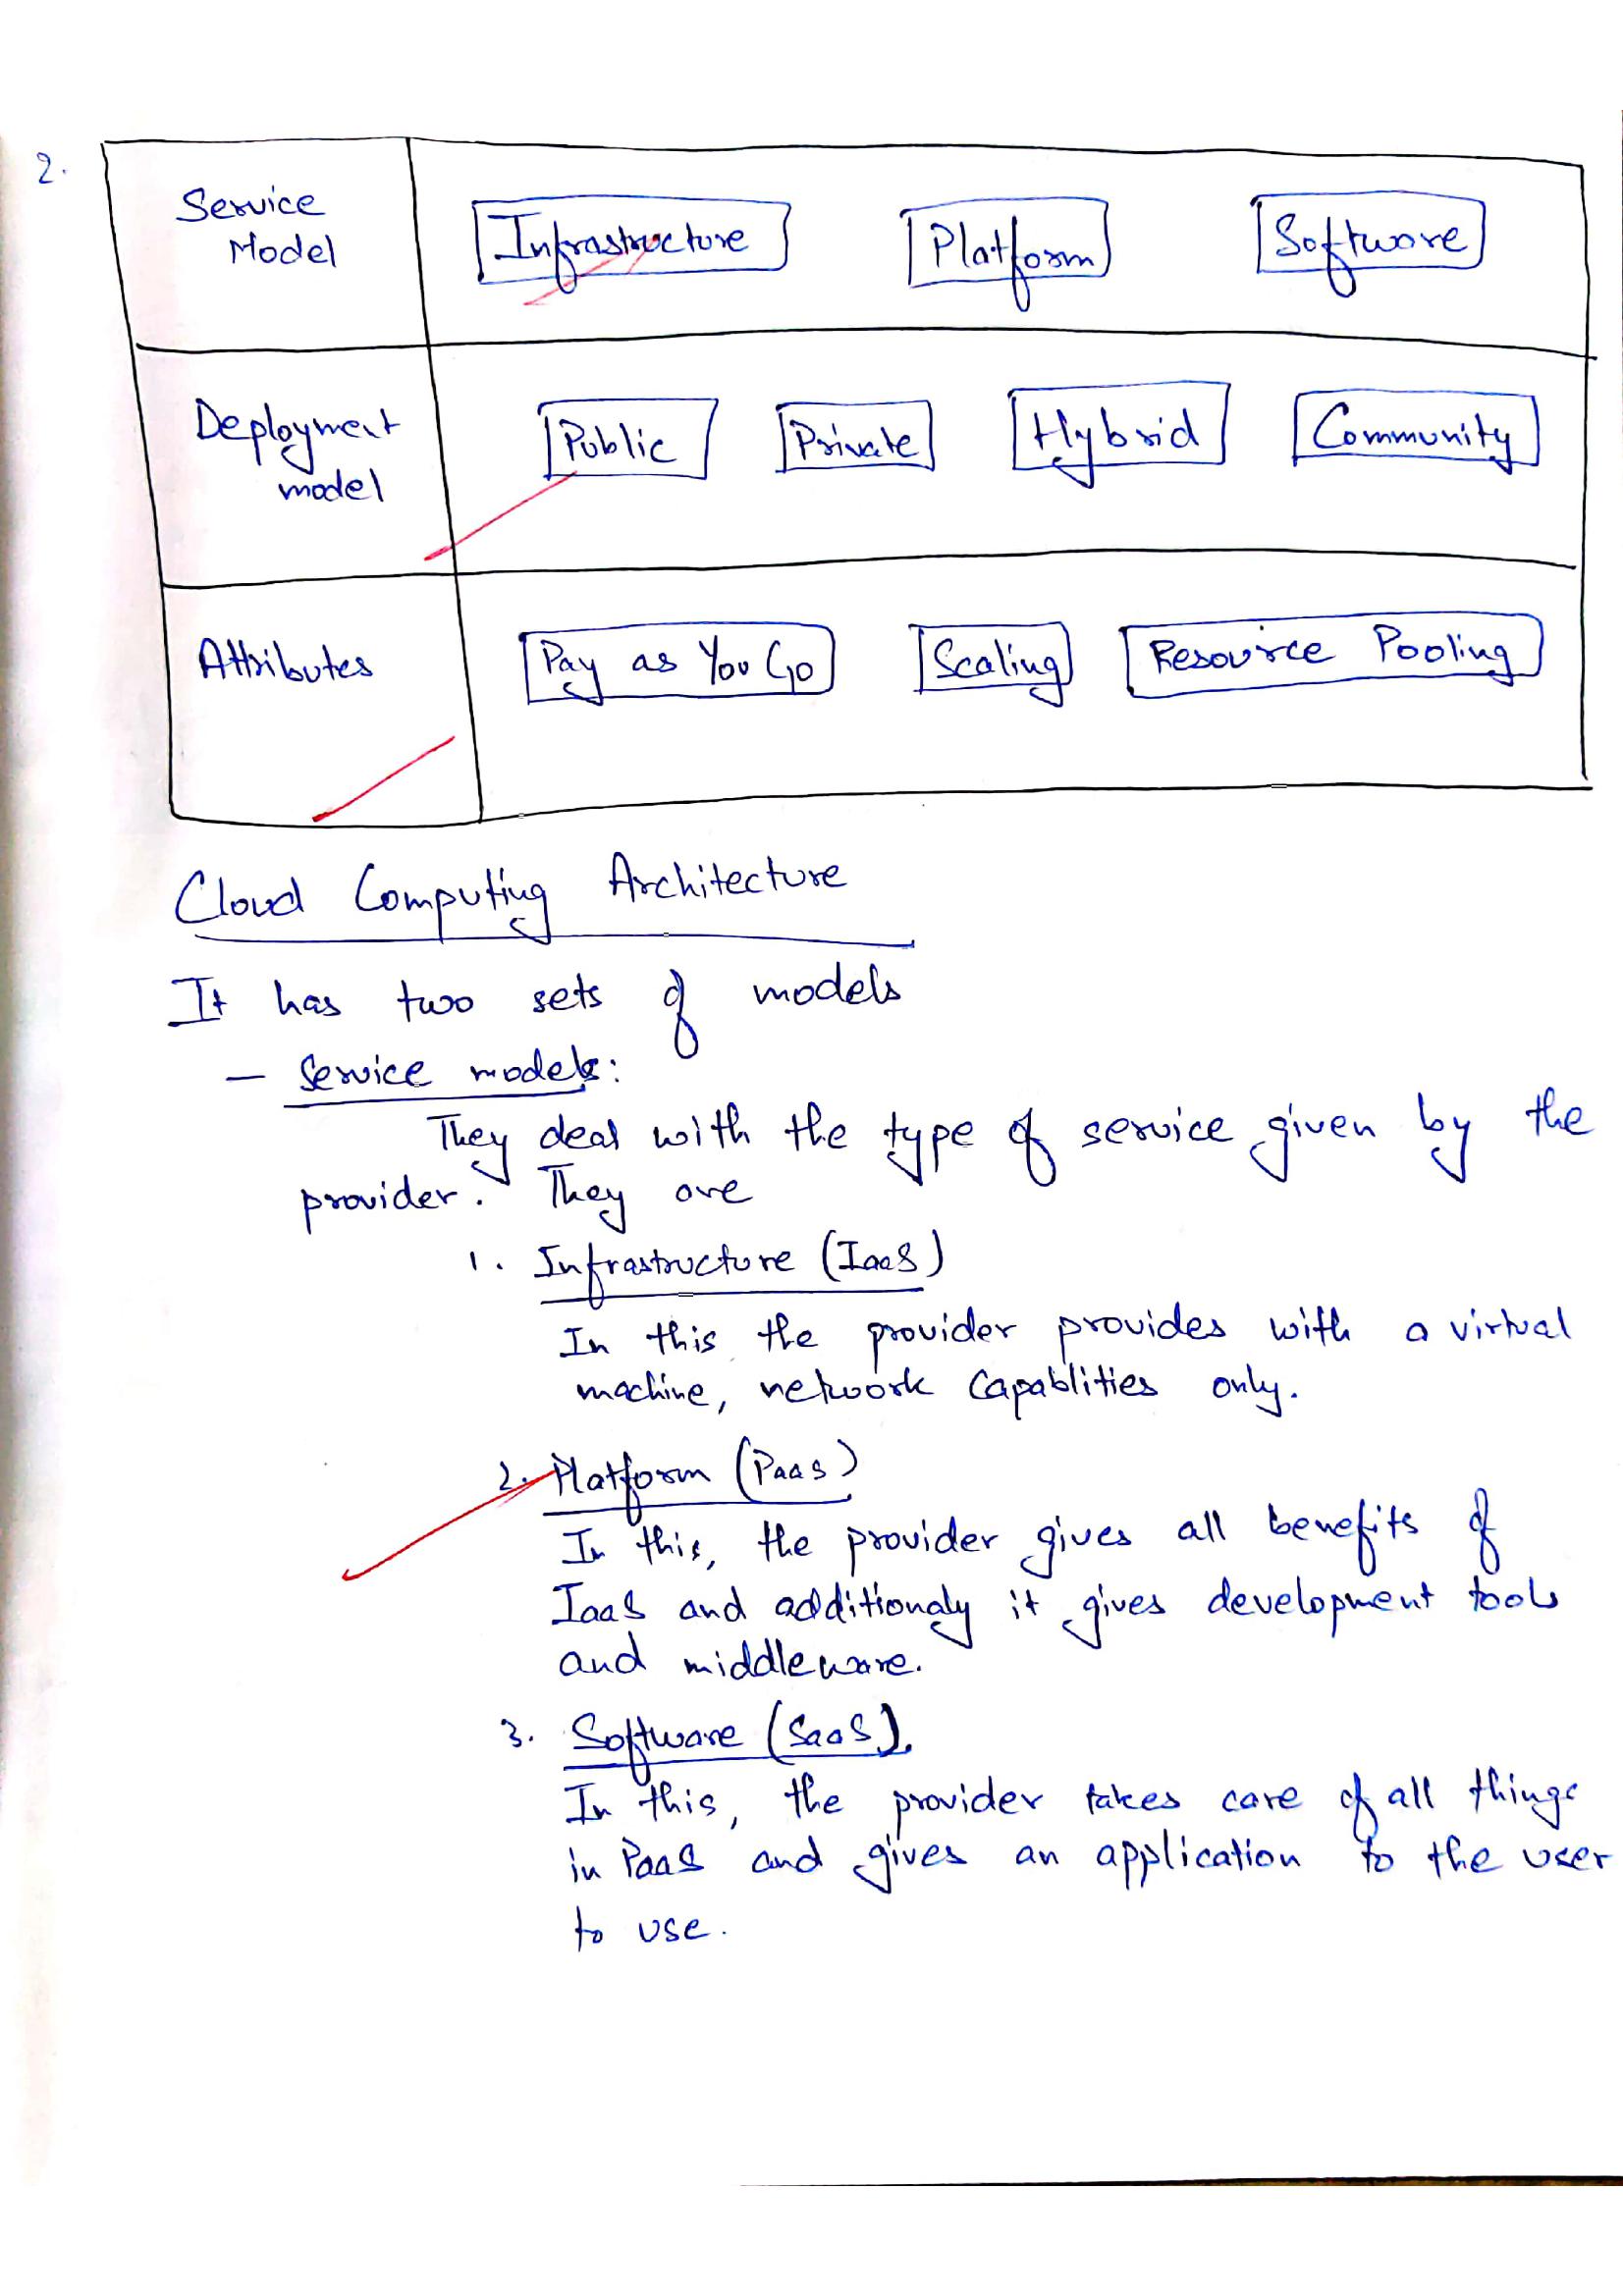 2.
Service
Model
Infrastructure Platform Software
Deployment
model
Public Private Hybrid Community
Attributes
Pay as You Go Scaling Resource Pooling
Cloud Computing Architecture
It has two sets of models
- Service models:
They deal with the type of service given by the
provider. They are
1. Infrastructure (IaaS)
In this the provider provides with a virtual
machine, network capablities only.
2. Platform (PaaS)
In this, the provider gives all benefits of
IaaS and additionaly it gives development tools
and middleware.
3. Software (SaaS).
In this, the provider takes care of all things
in PaaS and gives an application to the user
to use.